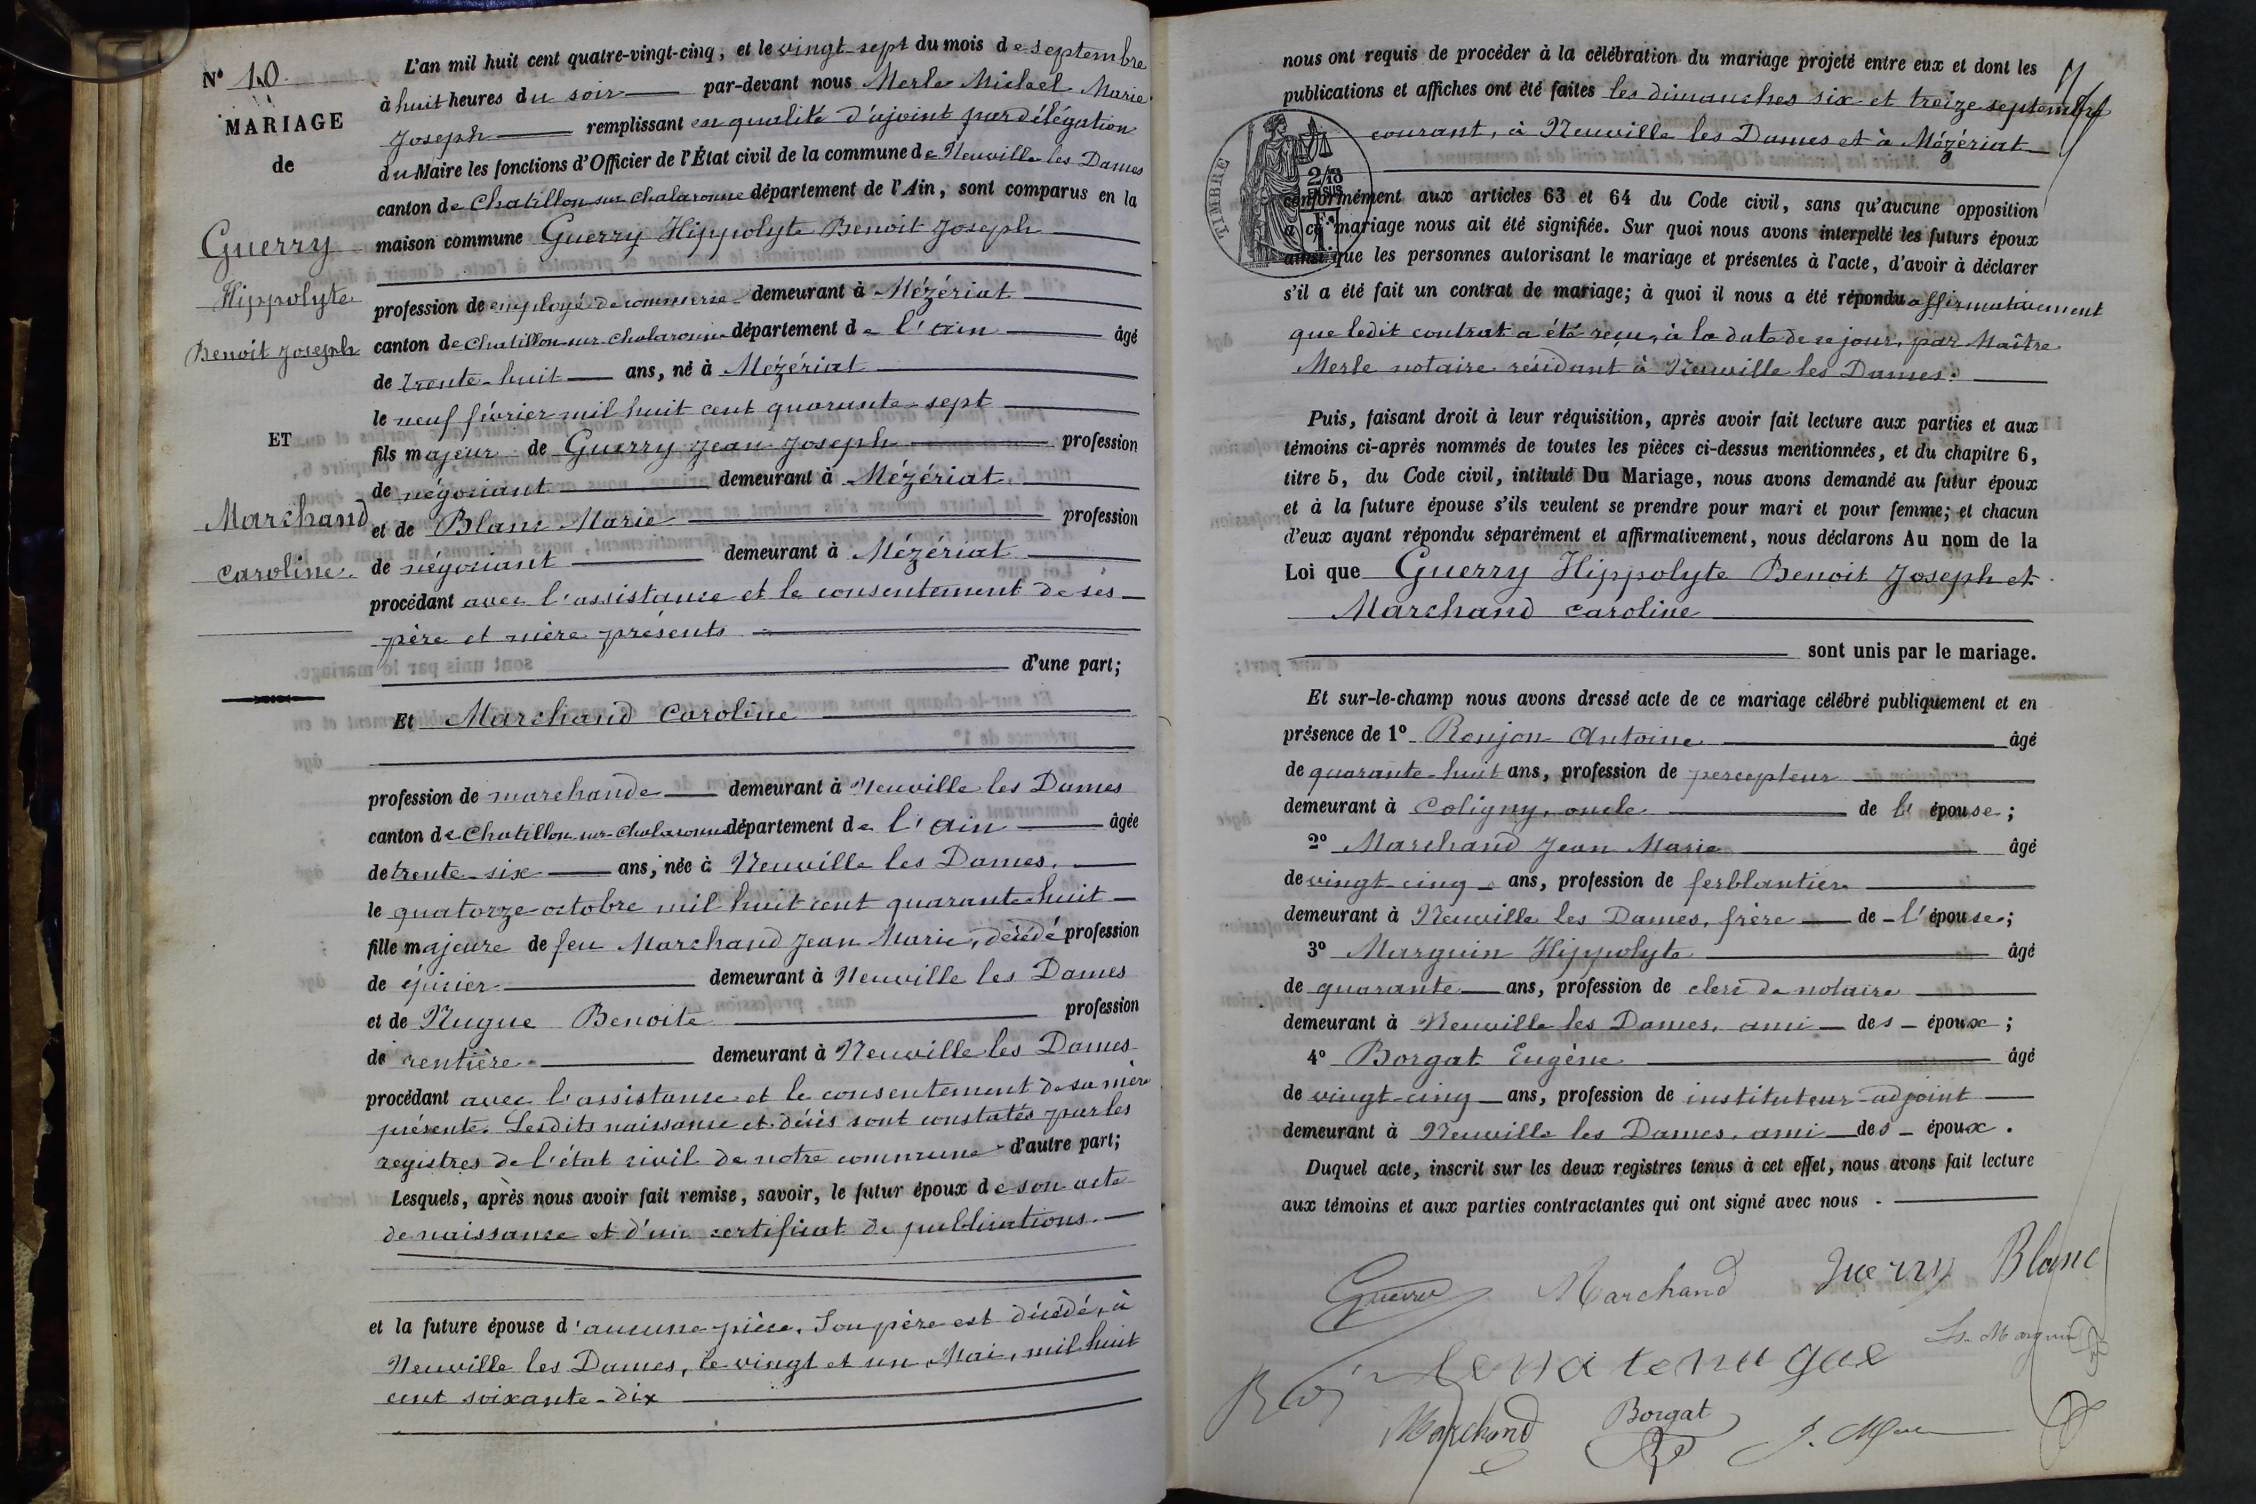 L'an mil huit cent quatre-vingt-cinq, et le vingt-sept du mois de septembre
N° 10
à huit heures du soir par-devant nous Merle Michel Marie
MARIAGE
Joseph remplissant en qualité d'ajoint par délégation
de
du Maire les fonctions d'Officier de l'État civil de la commune de Neuville les Dames
canton de Chatillon-sur-Chalaronne département de l'Ain, sont comparus en la
Guerry
maison commune Guerry Hippolyte Benoit Joseph
Hippolyte
profession de employé de commerce demeurant à Mézériat
Benoit Joseph
canton de Chatillon-sur-Chalaronne département de l'Ain âgé
de trente-huit ans, né à Mézériat
le neuf février mil huit cent quarante-sept
ET
fils majeur de Guerry Jean Joseph profession
de négociant demeurant à Mézériat
Marchand
et de Blanc Marie profession
Caroline.
de négociant demeurant à Mézériat
procédant avec l'assistance et le consentement de ses
père et mère présents
d'une part;
Et Marchand Caroline
profession de marchande demeurant à Neuville les Dames
canton de Chatillon-sur-Chalaronne département de l'Ain âgée
de trente-six ans, née à Neuville les Dames.
le quatorze octobre mil huit cent quarante-huit
fille majeure de feu Marchand Jean Marie, décédé profession
de épicier demeurant à Neuville les Dames
et de Nugue Benoite profession
de rentière demeurant à Neuville les Dames
procédant avec l'assistance et le consentement de sa mère
présente. Lesdits naissance et décès sont constatés par les
registres de l'état civil de notre commune d'autre part;
Lesquels, après nous avoir fait remise, savoir, le futur époux de son acte
de naissance et d'un certificat de publications.
et la future épouse d'aucune pièce. Son père est décédé, à
Neuville les Dames, le vingt et un Mai, mil huit
cent soixante-dix
nous ont requis de procéder à la célébration du mariage projeté entre eux et dont les
publications et affiches ont été faites les dimanches six et treize septembre
courant, à Neuville les Dames et à Mézériat
TIMBRE
2/10 EN SUS
1 F.
conformément aux articles 63 et 64 du Code civil, sans qu'aucune opposition
à ce mariage nous ait été signifiée. Sur quoi nous avons interpellé les futurs époux
ainsi que les personnes autorisant le mariage et présentes à l'acte, d'avoir à déclarer
s'il a été fait un contrat de mariage; à quoi il nous a été répondu affirmativement
que ledit contrat a été reçu, à la date de ce jour, par Maître
Merle notaire résidant à Neuville les Dames.
Puis, faisant droit à leur réquisition, après avoir fait lecture aux parties et aux
témoins ci-après nommés de toutes les pièces ci-dessus mentionnées, et du chapitre 6,
titre 5, du Code civil, intitulé Du Mariage, nous avons demandé au futur époux
et à la future épouse s'ils veulent se prendre pour mari et pour femme; et chacun
d'eux ayant répondu séparément et affirmativement, nous déclarons Au nom de la
Loi que Guerry Hippolyte Benoit Joseph et
Marchand Caroline
sont unis par le mariage.
Et sur-le-champ nous avons dressé acte de ce mariage célébré publiquement et en
présence de 1° Roujon Antoine âgé
de quarante-huit ans, profession de percepteur
demeurant à Coligny, oncle de l'épouse;
2° Marchand Jean Marie âgé
de vingt-cinq ans, profession de ferblantier
demeurant à Neuville les Dames, frère de l'épouse;
3° Marguin Hippolyte âgé
de quarante ans, profession de clerc de notaire
demeurant à Neuville les Dames, ami des époux;
4° Borgat Eugène âgé
de vingt-cinq ans, profession de instituteur-adjoint
demeurant à Neuville les Dames, ami des époux.
Duquel acte, inscrit sur les deux registres tenus à cet effet, nous avons fait lecture
aux témoins et aux parties contractantes qui ont signé avec nous.
Guerry Marchand Guerry Blanc
Marguin
Marchand Borgat